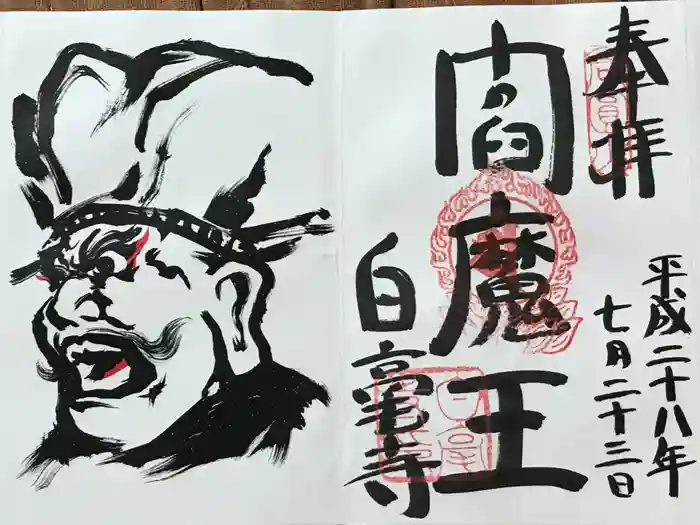 奉拝
平成二十八年
七月二十三日
閻魔王
白毫寺